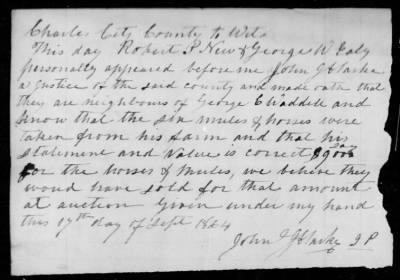 Charles City County to Wit
This day Robert P. New & George W Ealy
personally appeared before me John G Clarke
a Justice of the said county and made oath that
they are neighbours of George E Waddell and
know that the six mules & horses were
taken from his farm and that his
statement and value is correct
for the horses & mules, we believe they
would have sold for that amount
at auction Given under my hand
this 17th day of Sept 1864
John G Clarke J P